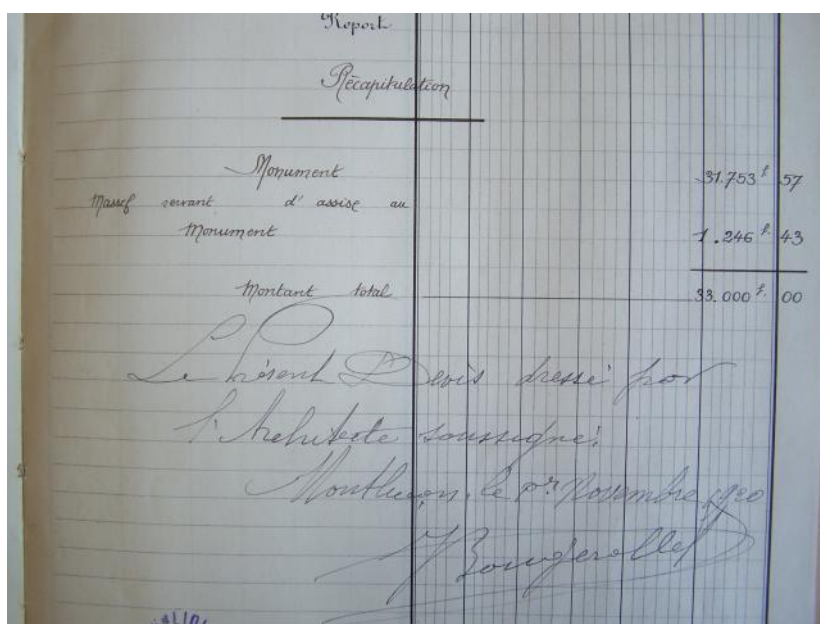 Report
Récapitulation
Monument 31.753 f. 57
Massif servant d'assise au
Monument 1.246 f. 43
Montant total 33.000 f. 00
Le Présent Devis dressé par
l'Architecte soussigné.
Montluçon, le 1er Novembre 1920